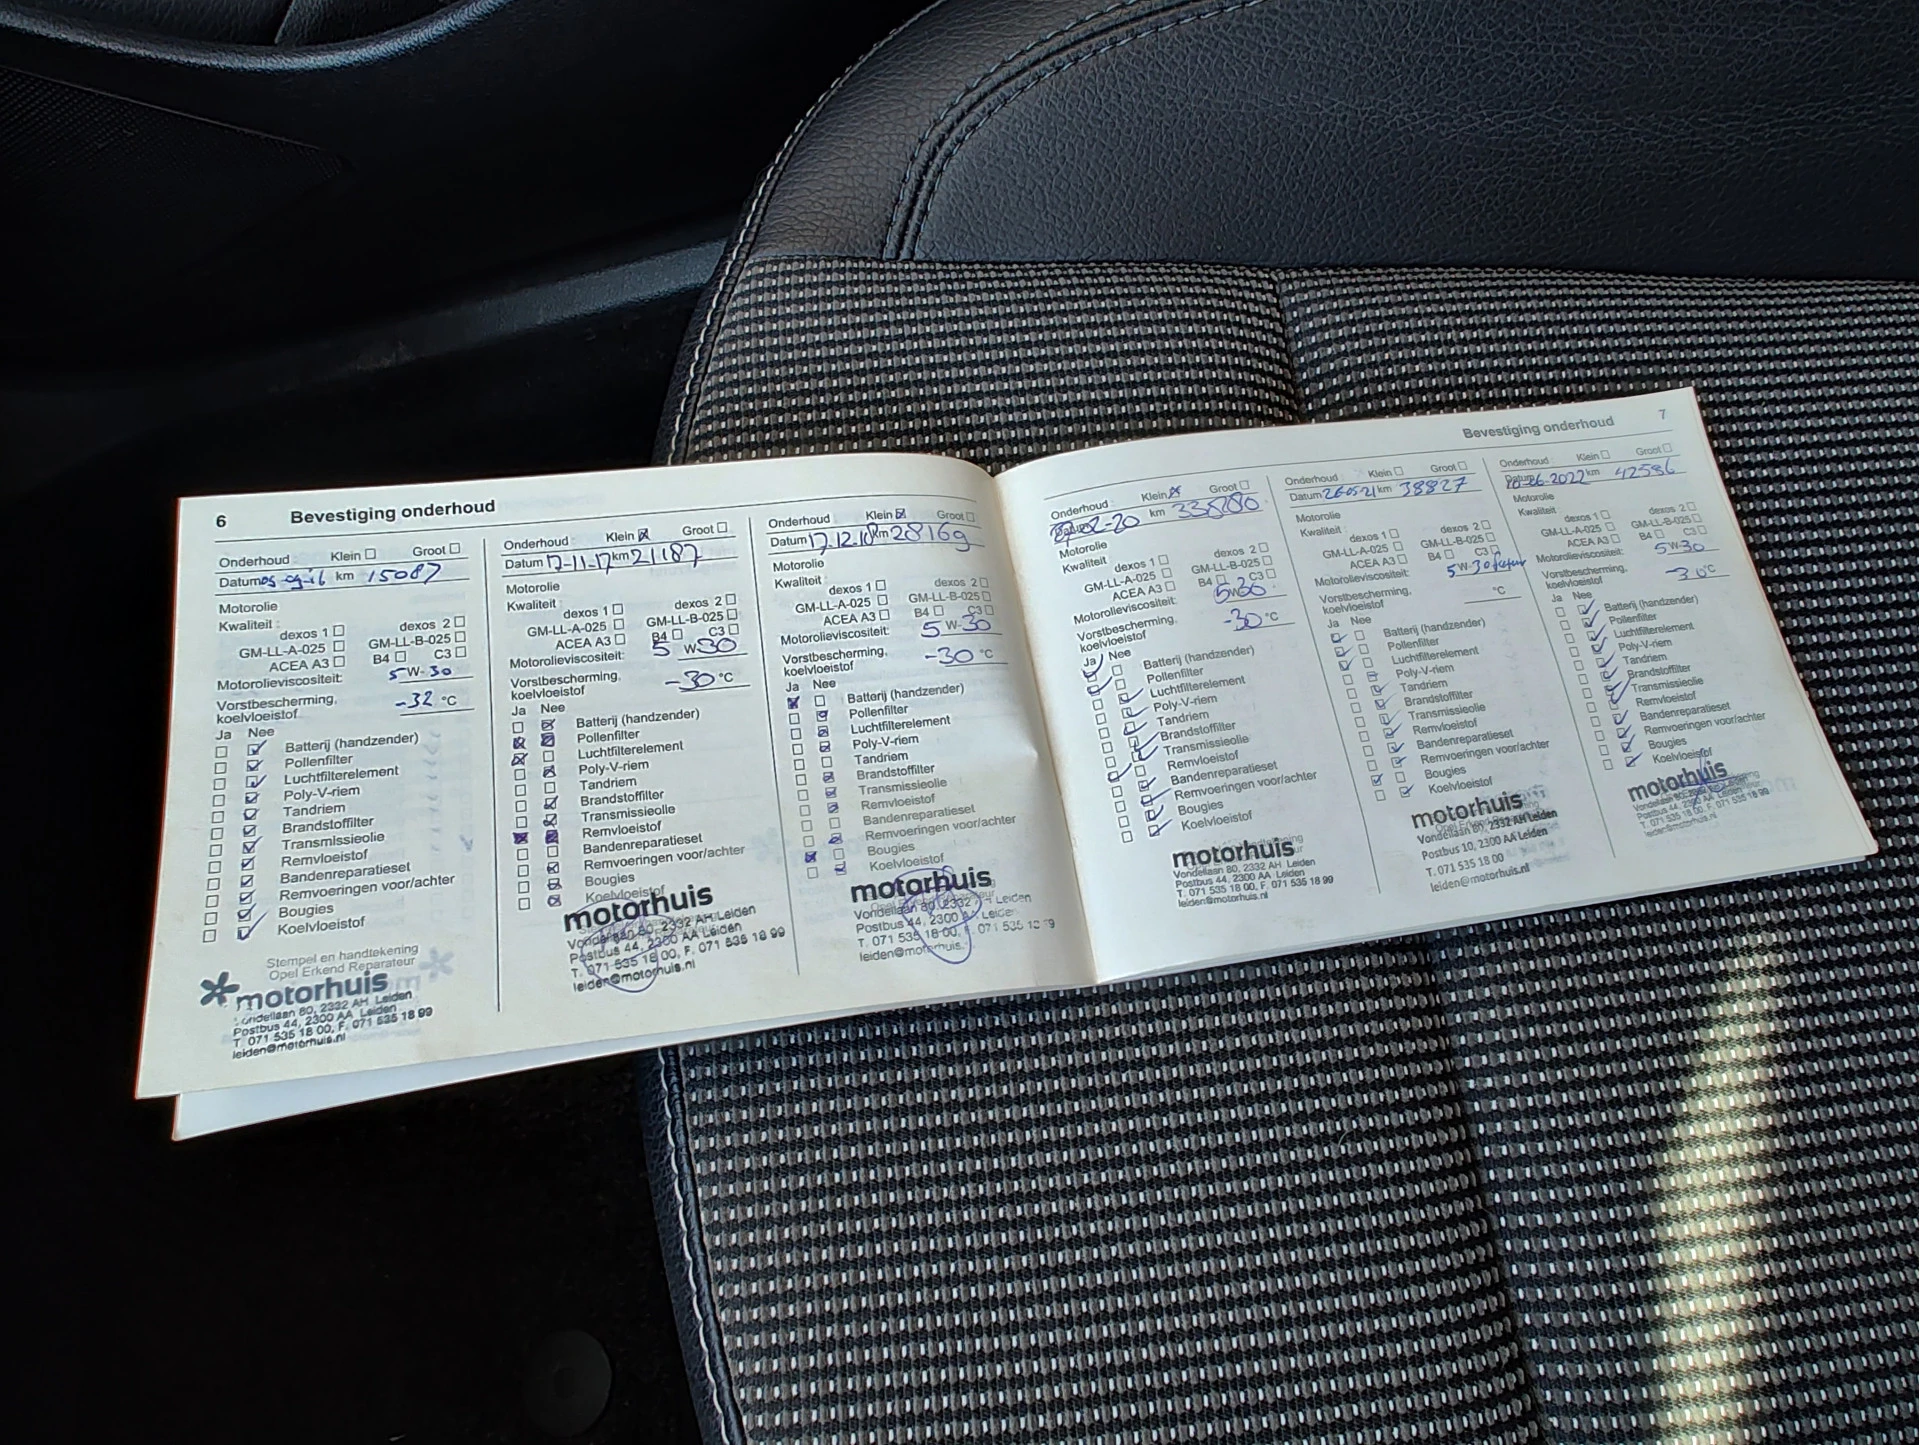 6 Bevestiging onderhoud
Onderhoud : Klein Groot
Datum 05-09-16 km 15087
Motorolie
Kwaliteit :
dexos 1 dexos 2
GM-LL-A-025 GM-LL-B-025
ACEA A3 B4 C3
Motorolieviscositeit: 5 W-30
Vorstbescherming,
koelvloeistof -32 °C
Ja Nee
Batterij (handzender)
Pollenfilter
Luchtfilterelement
Poly-V-riem
Tandriem
Brandstoffilter
Transmissieolie
Remvloeistof
Bandenreparatieset
Remvoeringen voor/achter
Bougies
Koelvloeistof
Stempel en handtekening
Opel Erkend Reparateur
motorhuis
Vondellaan 80, 2332 AH Leiden
Postbus 44, 2300 AA Leiden
T. 071 535 18 00, F. 071 535 18 99
leiden@motorhuis.nl
Onderhoud : Klein Groot
Datum 17-11-17 km 21187
Motorolie
Kwaliteit :
dexos 1 dexos 2
GM-LL-A-025 GM-LL-B-025
ACEA A3 B4 C3
Motorolieviscositeit: 5 W 30
Vorstbescherming,
koelvloeistof -30 °C
Ja Nee
Batterij (handzender)
Pollenfilter
Luchtfilterelement
Poly-V-riem
Tandriem
Brandstoffilter
Transmissieolie
Remvloeistof
Bandenreparatieset
Remvoeringen voor/achter
Bougies
Koelvloeistof
motorhuis
Vondellaan 80, 2332 AH Leiden
Postbus 44, 2300 AA Leiden
T. 071 535 18 00, F. 071 535 18 99
leiden@motorhuis.nl
Onderhoud Klein Groot
Datum 17-12-18 km 28169
Motorolie
Kwaliteit :
dexos 1 dexos 2
GM-LL-A-025 GM-LL-B-025
ACEA A3 B4 C3
Motorolieviscositeit: 5 W-30
Vorstbescherming,
koelvloeistof -30 °C
Ja Nee
Batterij (handzender)
Pollenfilter
Luchtfilterelement
Poly-V-riem
Tandriem
Brandstoffilter
Transmissieolie
Remvloeistof
Bandenreparatieset
Remvoeringen voor/achter
Bougies
Koelvloeistof
motorhuis
Vondellaan 80, 2332 Leiden
Postbus 44, 2300 AA Leiden
T. 071 535 18 00, F. 071 535 18 99
leiden@motorhuis.
Bevestiging onderhoud 7
Onderhoud : Klein Groot
Datum km
Motorolie
Kwaliteit
dexos 1 dexos 2
GM-LL-A-025 GM-LL-B-025
ACEA A3 B4 C3
Motorolieviscositeit: 5W30
Vorstbescherming,
koelvloeistof -30 °C
Ja Nee
Batterij (handzender)
Pollenfilter
Luchtfilterelement
Poly-V-riem
Tandriem
Brandstoffilter
Transmissieolie
Remvloeistof
Bandenreparatieset
Remvoeringen voor/achter
Bougies
Koelvloeistof
motorhuis
Vondellaan 80, 2332 AH Leiden
Postbus 44, 2300 AA Leiden
T. 071 535 18 00, F. 071 535 18 99
leiden@motorhuis.nl
Onderhoud : Klein Groot
Datum 26-05-21 km 38827
Motorolie
Kwaliteit :
dexos 1 dexos 2
GM-LL-A-025 GM-LL-B-025
ACEA A3 B4 C3
Motorolieviscositeit: 5 W-30
Vorstbescherming,
koelvloeistof °C
Ja Nee
Batterij (handzender)
Pollenfilter
Luchtfilterelement
Poly-V-riem
Tandriem
Brandstoffilter
Transmissieolie
Remvloeistof
Bandenreparatieset
Remvoeringen voor/achter
Bougies
Koelvloeistof
motorhuis
Vondellaan 80, 2332 AH Leiden
Postbus 10, 2300 AA Leiden
T. 071 535 18 00
leiden@motorhuis.nl
Onderhoud : Klein Groot
Datum 10-06-2022 km 42586
Motorolie
Kwaliteit :
dexos 1 dexos 2
GM-LL-A-025 GM-LL-B-025
ACEA A3 B4 C3
Motorolieviscositeit: 5 W 30
Vorstbescherming,
koelvloeistof -30 °C
Ja Nee
Batterij (handzender)
Pollenfilter
Luchtfilterelement
Poly-V-riem
Tandriem
Brandstoffilter
Transmissieolie
Remvloeistof
Bandenreparatieset
Remvoeringen voor/achter
Bougies
Koelvloeistof
motorhuis
Vondellaan 80, 2332 AH Leiden
Postbus 44, 2300 AA Leiden
T. 071 535 18 00, F. 071 535 18 99
leiden@motorhuis.nl